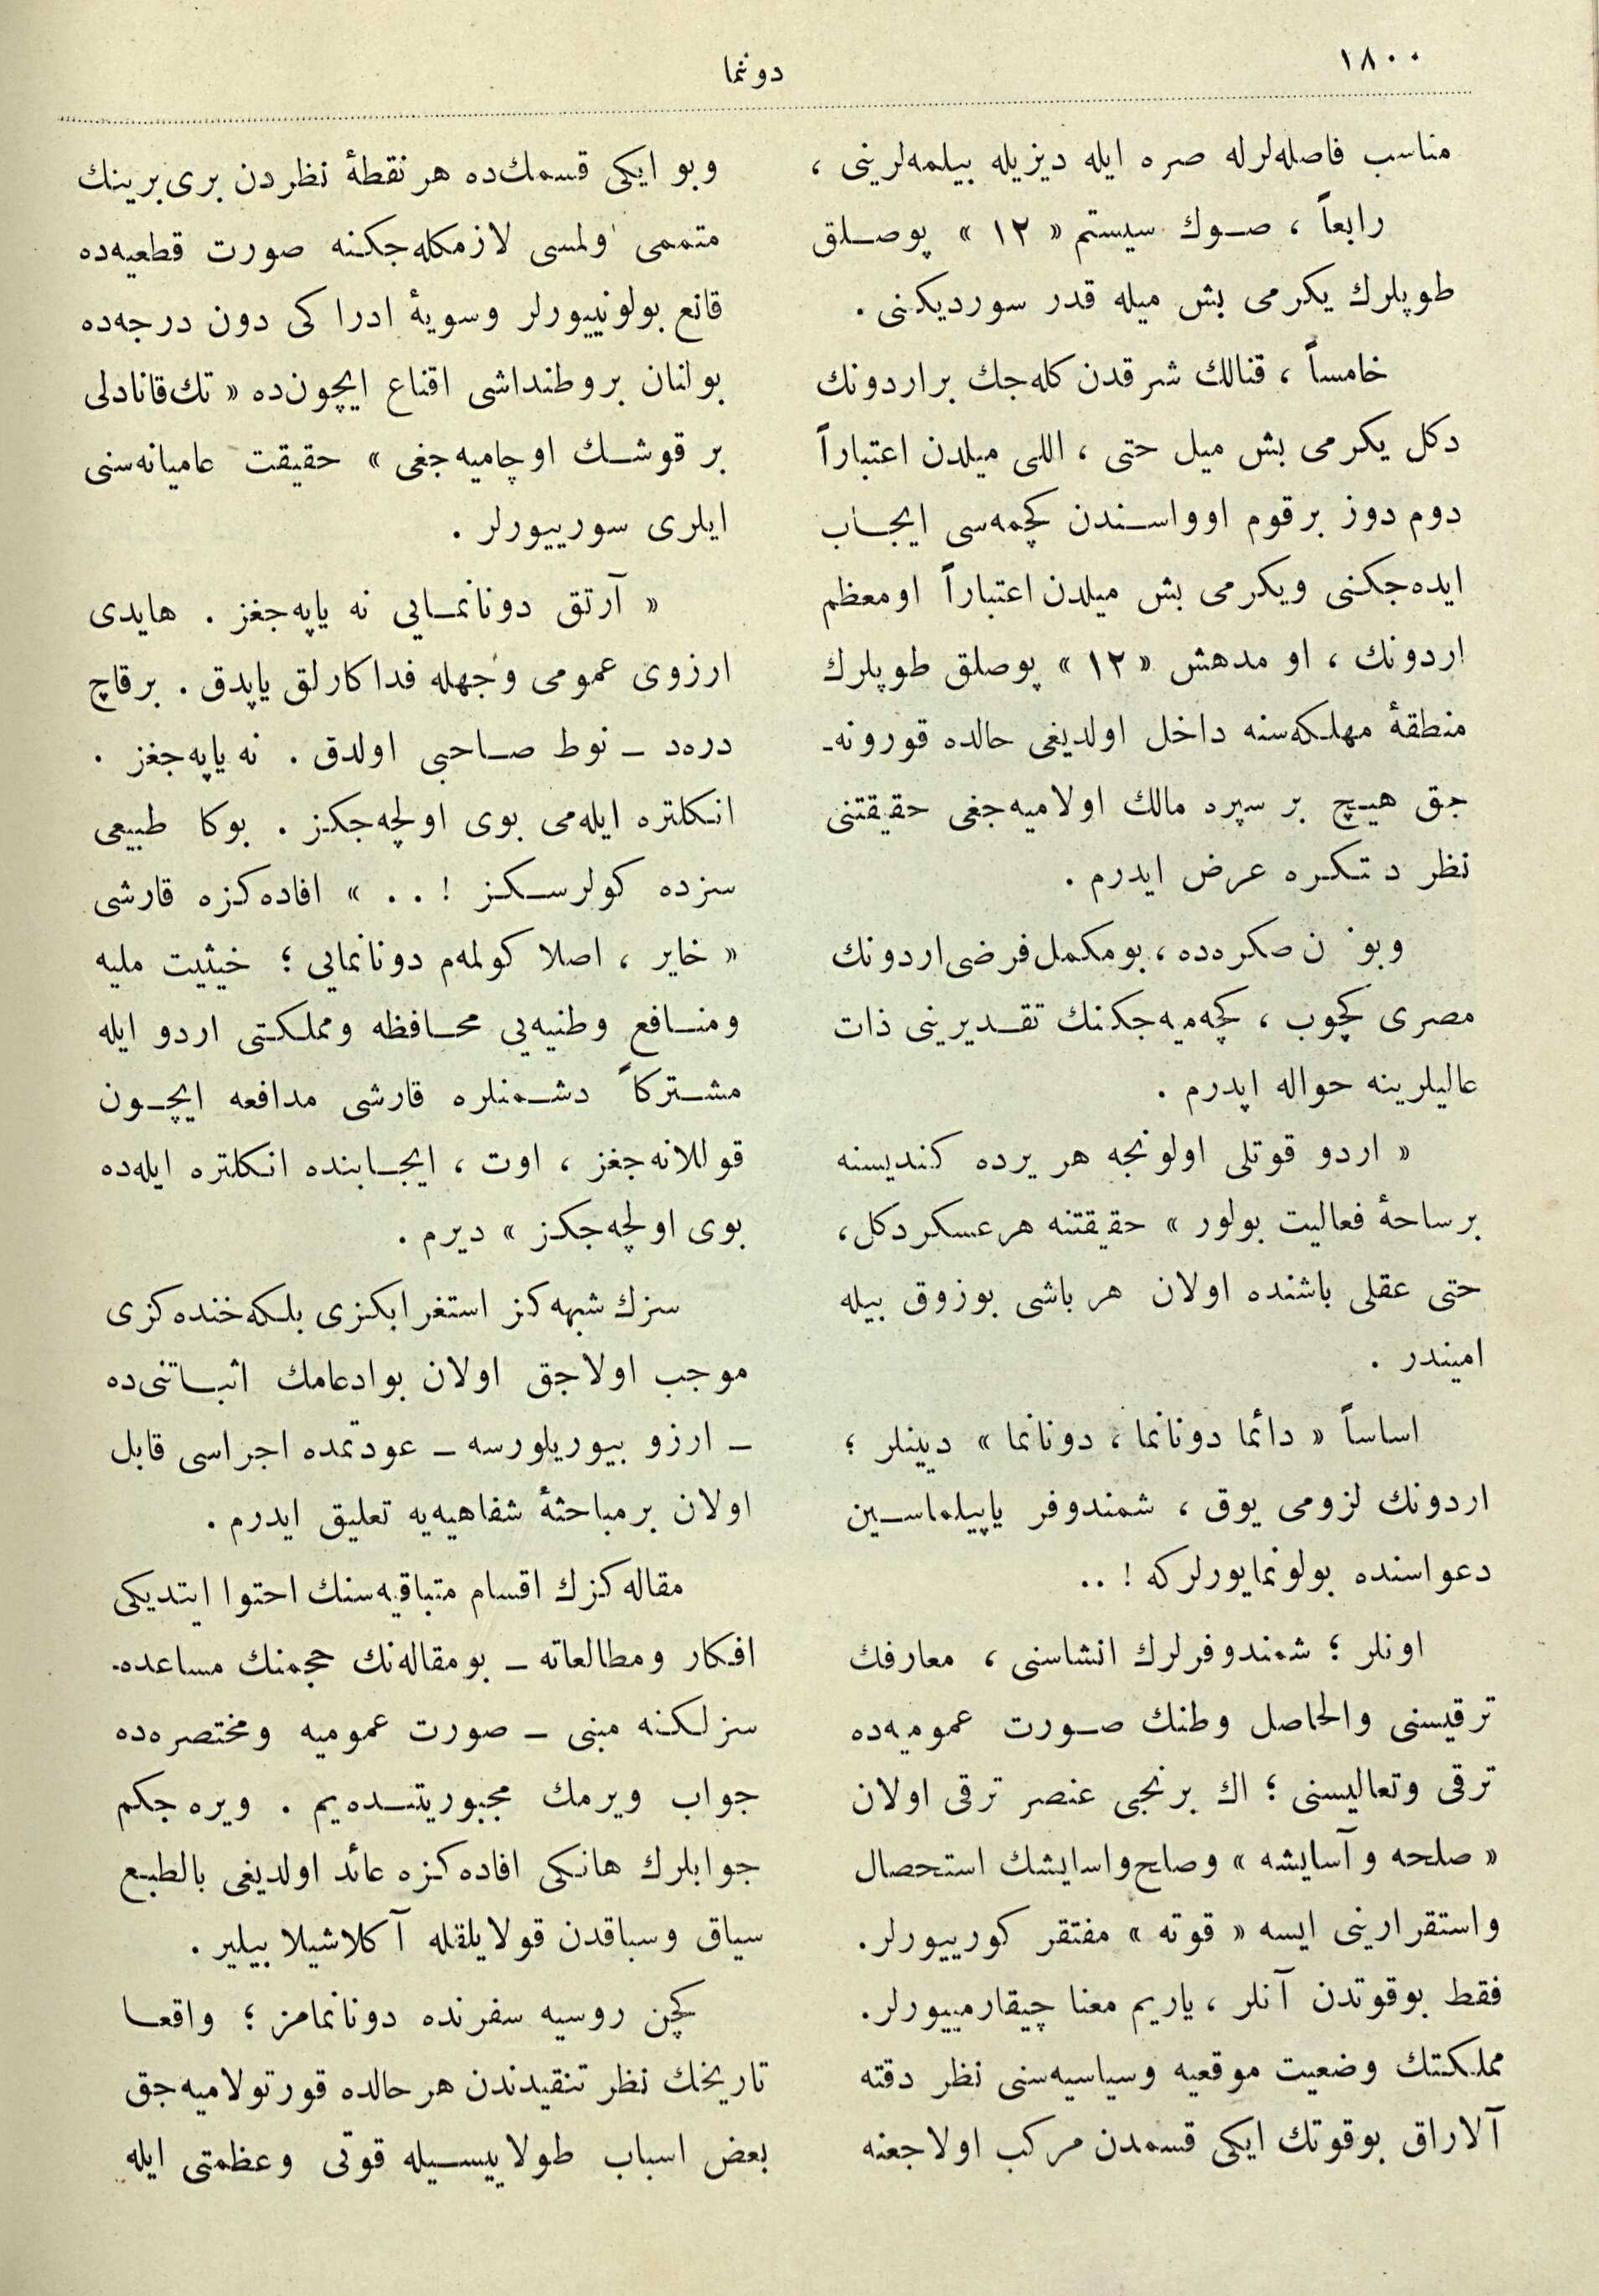 ١٨٠٠
دونما
مناسب فاصله‌لرله صره ایله دیزیله بیلمه‌لرینی ،
رابعاً ، صوك سیستم « ١٢ » پوصلق
طوپلرك یكرمی بش میله قدر سوردیكنی .
خامساً ، قنالك شرقدن كله‌جك براردونك
دكل یكرمی بش میل حتی ، اللی میلدن اعتباراً
دوم دوز برقوم اوواسندن كچمه‌سی ایجاب
ایده‌جكنی ویكرمی بش میلدن اعتباراً اومعظم
اردونك ، او مدهش « ١٢ » پوصلق طوپلرك
منطقهٔ مهلكه‌سنه داخل اولدیغی حالده قورونه‌ـ
جق هیچ بر سپره مالك اولامیه‌جغی حقیقتنی
نظر دتكره عرض ایدرم .
وبو ن صكره‌ده ، بومكمل فرضی اردونك
مصری كچوب ، كچه‌میه‌جكنك تقدیرینی ذات
عالیلرینه حواله ایدرم .
« اردو قوتلی اولونجه هر یرده كندیسنه
برساحهٔ فعالیت بولور » حقیقتنه هرعسكردكل ،
حتی عقلی باشنده اولان هر باشی بوزوق بیله
امیندر .
اساساً « دائما دونانما ، دونانما » دیینلر ؛
اردونك لزومی یوق ، شمندوفر یاپیلماسین
دعواسنده بولونمایورلركه ! ..
اونلر ؛ شمندوفرلرك انشاسنی ، معارفك
ترقیسنی والحاصل وطنك صورت عمومیه‌ده
ترقی وتعالیسنی ؛ اك برنجی عنصر ترقی اولان
« صلحه وآسایشه » وصلح‌واسایشك استحصال
واستقرارینی ایسه « قوته » مفتقر كورییورلر.
فقط بوقوتدن آنلر ، یاریم معنا چیقارمییورلر.
مملكتك وضعیت موقعیه وسیاسیه‌سنی نظر دقته
آلاراق بوقوتك ایكی قسمدن مركب اولاجعنه
وبو ایكی قسمك‌ده هر نقطهٔ نظردن بری‌برینك
متممی ولمسی لازمكله‌جكنه صورت قطعیه‌ده
قانع بولونییورلر وسویهٔ ادراكی دون درجه‌ده
بولنان بروطنداشی اقناع ایچون‌ده « تك‌قانادلی
بر قوشك اوچامیه‌جغی » حقیقت عامیانه‌سنی
ایلری سورییورلر .
« آرتق دونانمایی نه یاپه‌جغز . هایدی
ارزوی عمومی وجهله فداكارلق یاپدق . برقاچ
دره‌د ــ نوط صاحبی اولدق . نه یاپه‌جغز .
انكلتره ایله‌می بوی اولچه‌جكز . بوكا طبیعی
سزده كولرسكز ! .. » افاده‌كزه قارشی
« خایر ، اصلا كولمه‌م دونانمایی ؛ حیثیت ملیه
ومنافع وطنیه‌یی محافظه ومملكتی اردو ایله
مشتركاً دشمنلره قارشی مدافعه ایچون
قوللانه‌جغز ، اوت ، ایجابنده انكلتره ایله‌ده
بوی اولچه‌جكز » دیرم .
سزك شبهه‌كز استغرابكزی بلكه خنده‌كزی
موجب اولاجق اولان بوادعامك اثباتنی‌ده
ــ ارزو بیوریلورسه ــ عودتمده اجراسی قابل
اولان برمباحثهٔ شفاهیه‌یه تعلیق ایدرم .
مقاله‌كزك اقسام متباقیه‌سنك احتوا ایتدیكی
افكار ومطالعاته ــ بومقاله‌نك حجمنك مساعده‌ـ
سزلكنه مبنی ــ صورت عمومیه ومختصره‌ده
جواب ویرمك مجبوریتنده‌یم . ویره‌جكم
جوابلرك هانكی افاده‌كزه عائد اولدیغی بالطبع
سیاق وسباقدن قولایلقله آكلاشیلابیلیر .
كچن روسیه سفرنده دونانمامز ؛ واقعا
تاریخك نظر تنقیدندن هرحالده قورتولامیه‌جق
بعض اسباب طولاییسیله قوتی وعظمتی ایله